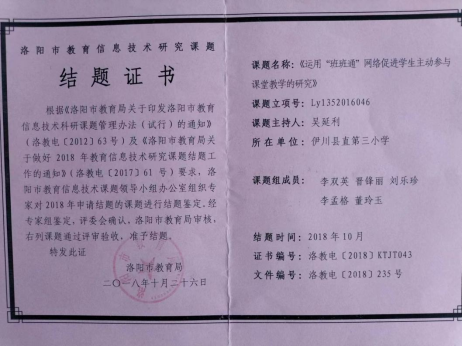 洛阳市教育信息技术研究课题
结题证书
根据《洛阳市教育局关于印发洛阳市教育
信息技术科研课题管理办法（试行）的通知》
（洛教电〔2012〕63号）及《洛阳市教育局关
于做好2018年教育信息技术研究课题结题工
作的通知》（洛教电〔2017〕61号）要求，洛
阳市教育信息技术课题领导小组办公室组织专
家对2018年申请结题的课题进行结题鉴定。经
专家组鉴定，评委会确认，洛阳市教育局审核，
右列课题通过评审验收，准予结题。
特发此证
洛阳市教育局
二〇一八年十月二十六日
课题名称：《运用“班班通”网络促进学生主动参与
课堂教学的研究》
课题立项号：Ly1352016046
课题主持人：吴延利
所在单位：伊川县直第三小学
课题组成员：李双英 晋锋丽 刘乐珍
李孟格 董玲玉
结题时间：2018年10月
证书编号：洛教电〔2018〕KTJT043
文件编号：洛教电〔2018〕235号